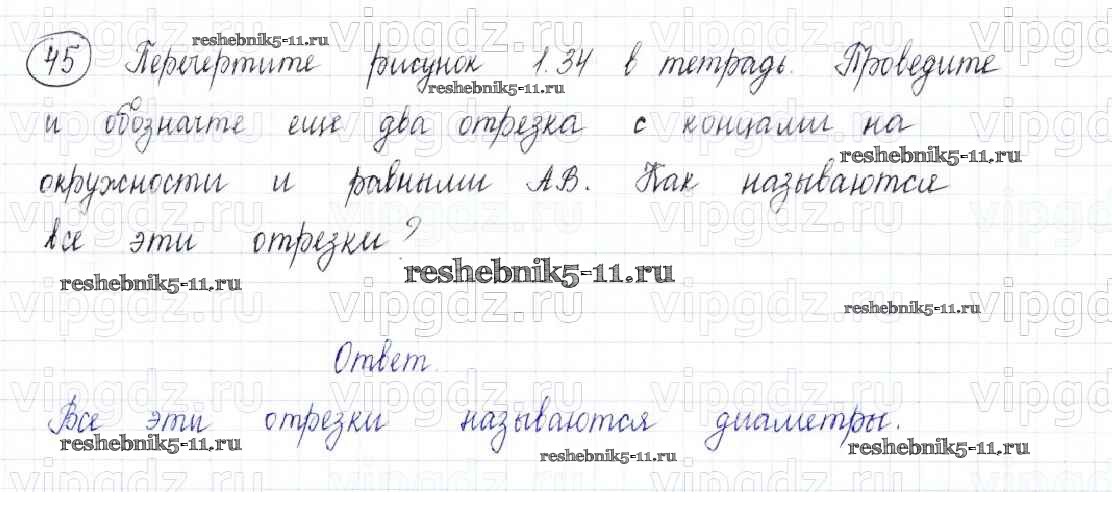 45 Перечертите рисунок 1.34 в тетрадь. Проведите
и обозначте еще два отрезка с концами на
окружности и равными АВ. Как называются
все эти отрезки?
Ответ.
Все эти отрезки называются диаметры.
reshebnik5-11.ru
reshebnik5-11.ru
reshebnik5-11.ru
reshebnik5-11.ru
reshebnik5-11.ru
reshebnik5-11.ru
reshebnik5-11.ru
reshebnik5-11.ru
reshebnik5-11.ru
vipgdz.ru